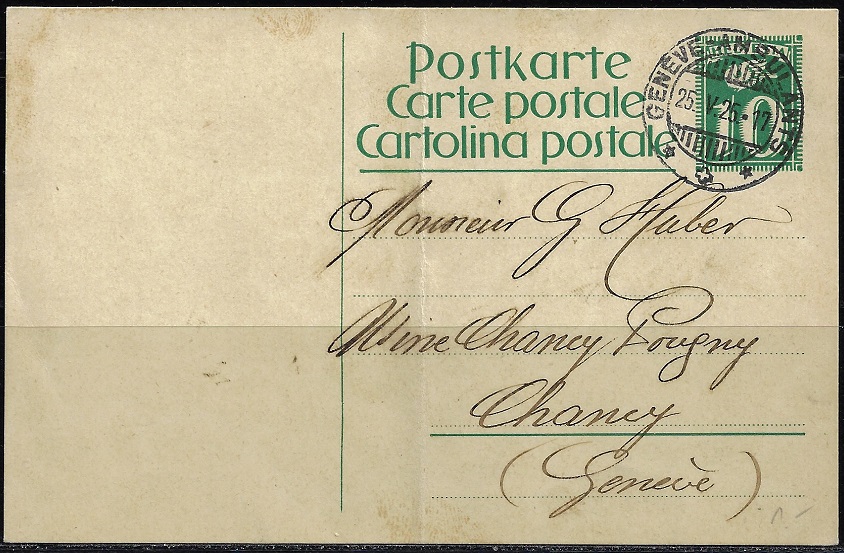 Postkarte
Carte postale
Cartolina postale
GENÈVE - AMBULANTS
25.V.25.-17
10
Monsieur G Huber
Usine Chancy Pougny
Chancy
(Genève)